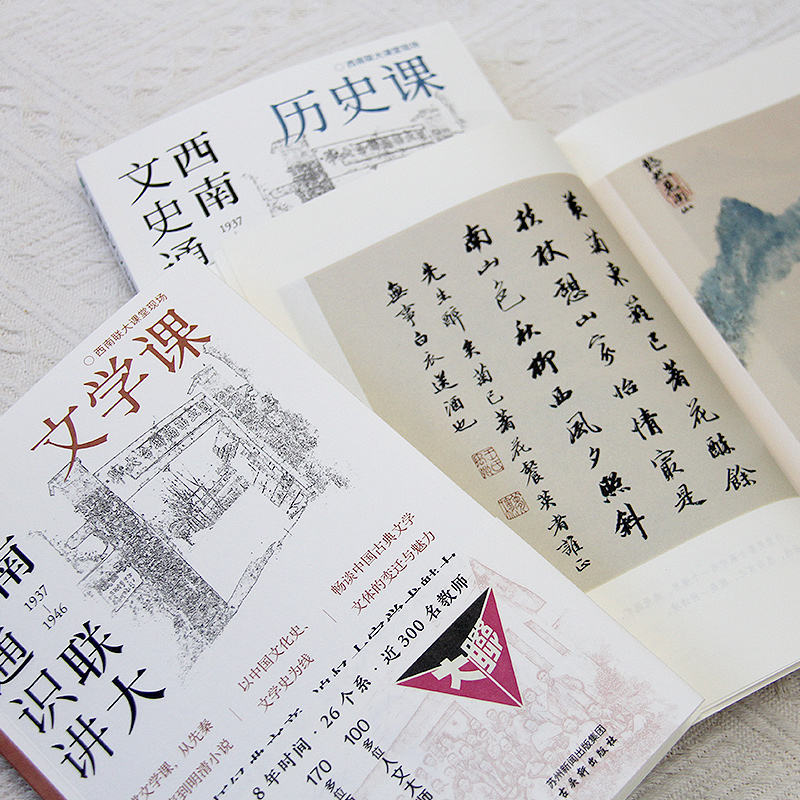 ○西南联大课堂现场
历史课
西南
文史通
1937
黄菊東蘺已著花醉餘
扶杖憩山家怡情冣是
南山色秋柳西風夕照斜
先生醉矣菊已著花餐英者誰
無事白衣送酒也
○西南联大课堂现场
文学课
南
联大
通识讲
1937
1946
畅谈中国古典文学
文体的变迁与魅力
以中国文化史、
文学史为线
文学课,从先秦
到明清小说
8年时间·26个系·近300名教师
100多位人文大师
170多位
大聯
苏州新闻出版集团
古吴轩出版社